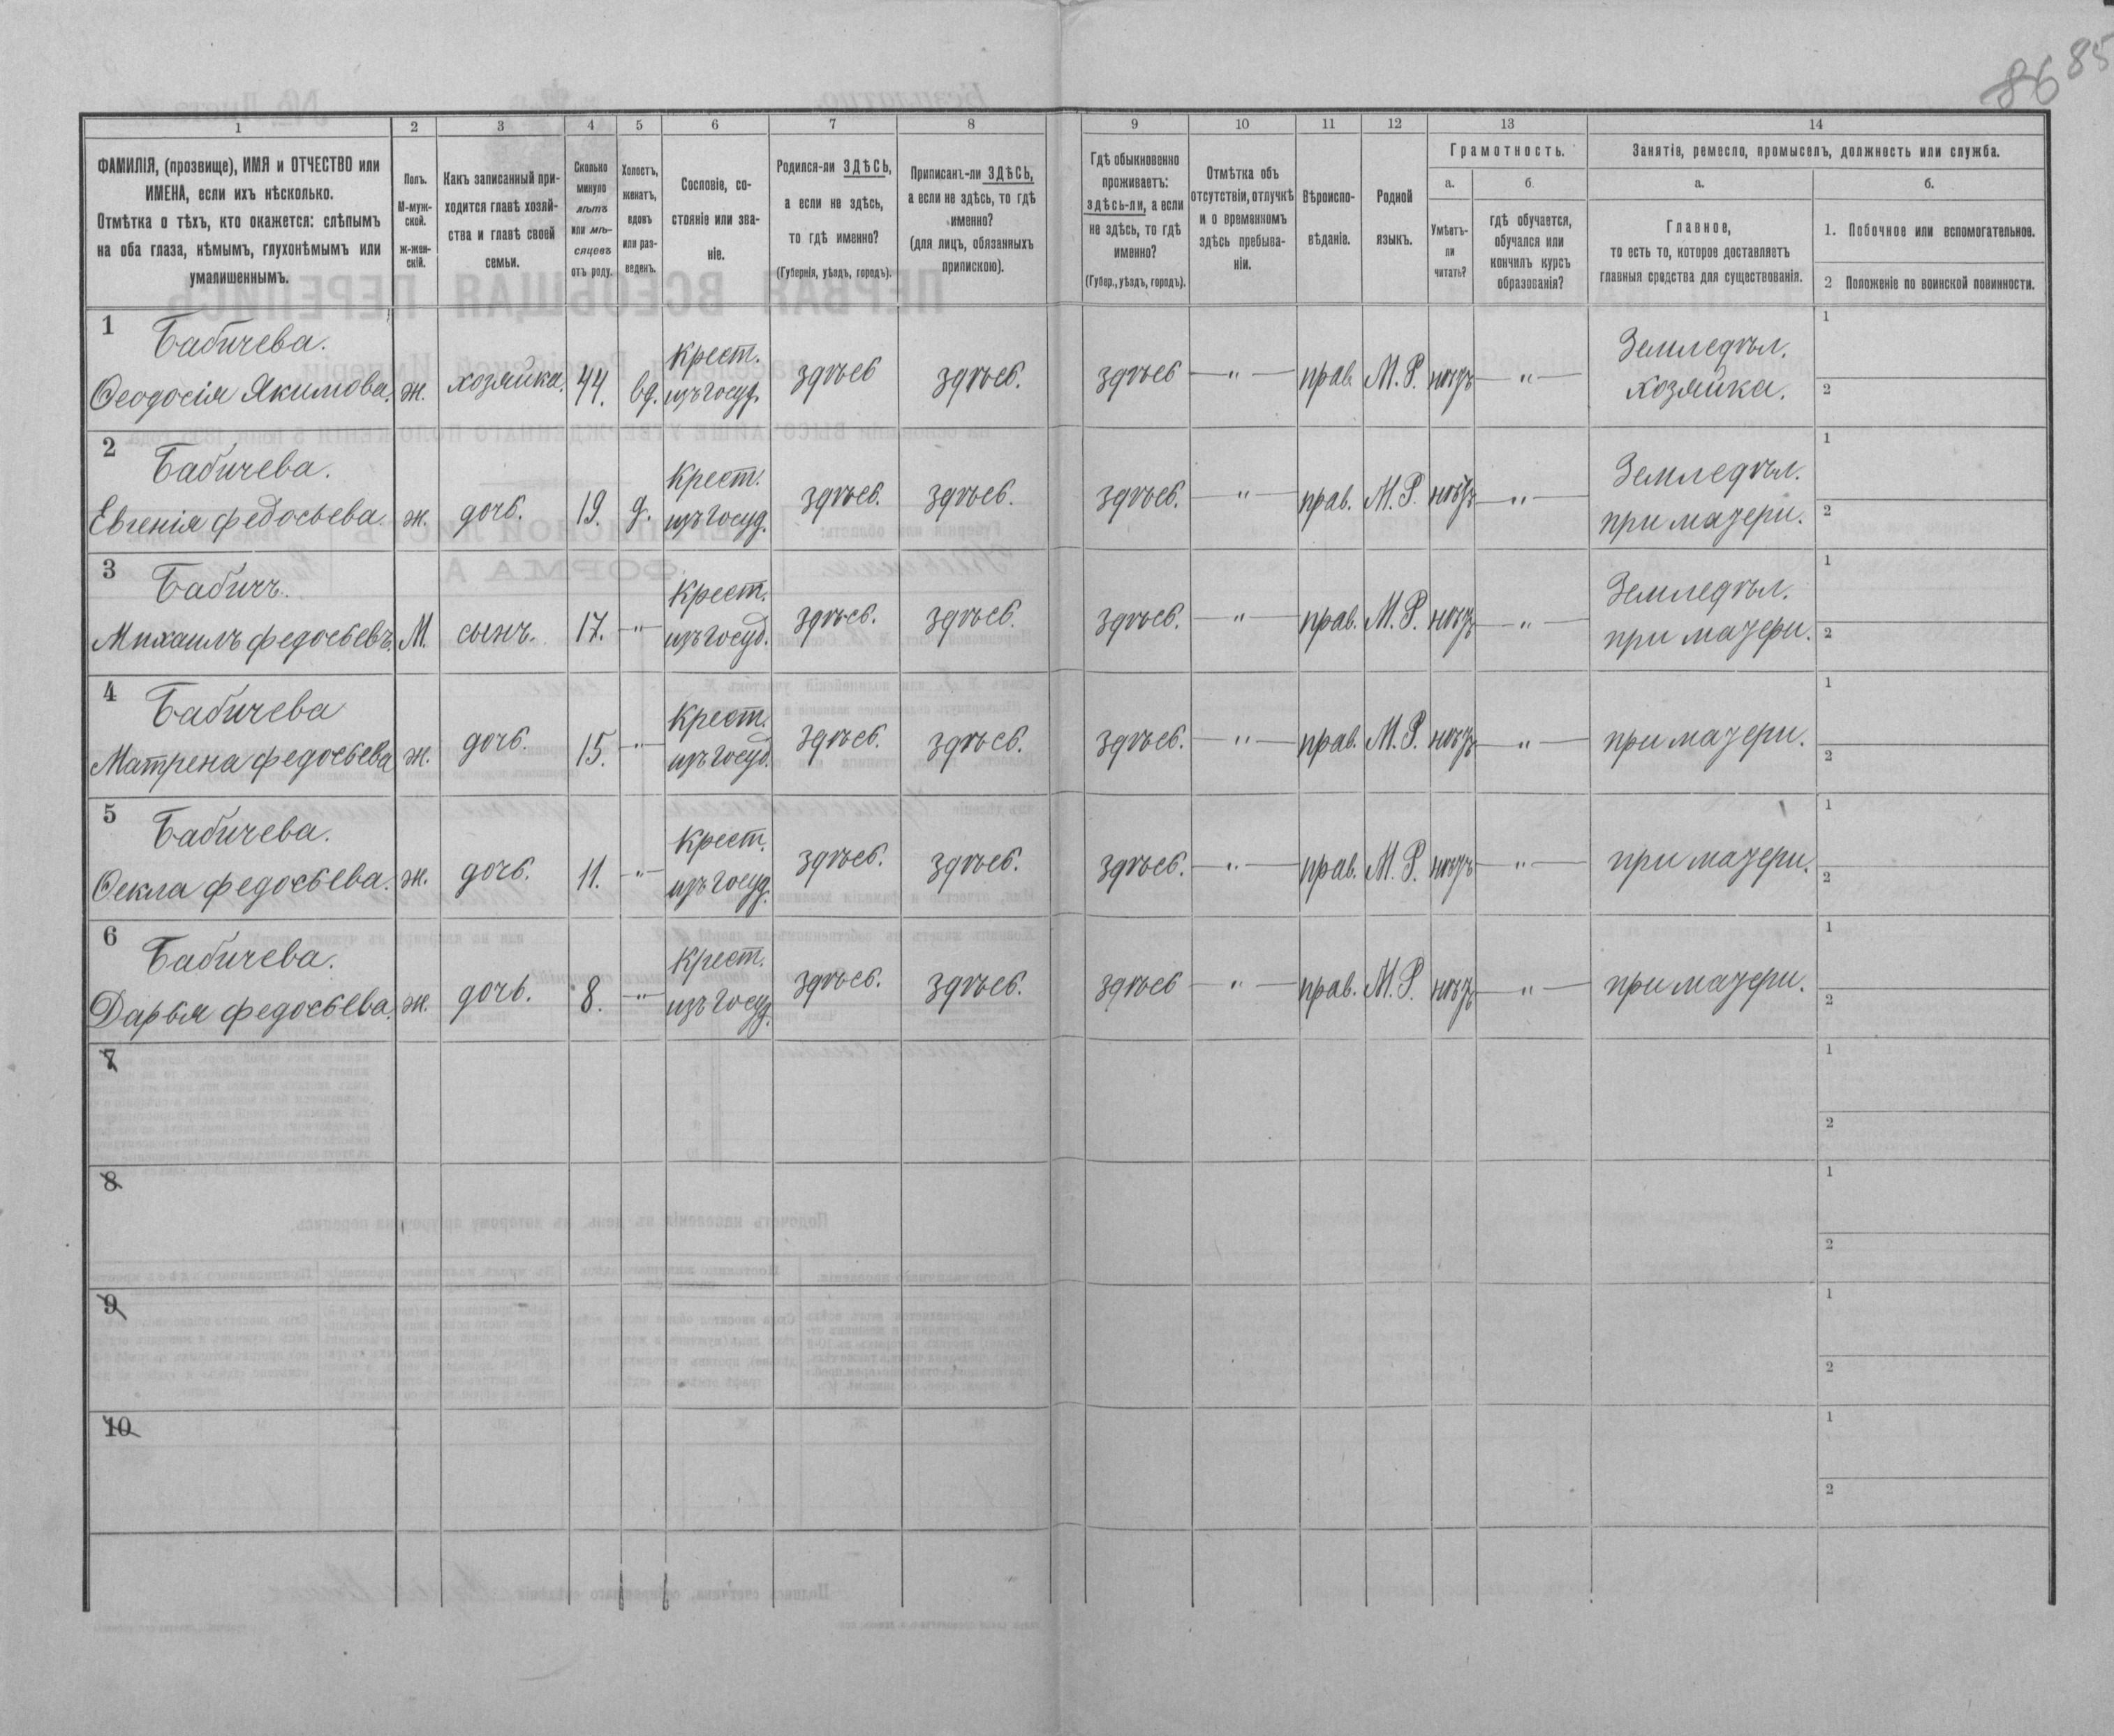 86 85
1
2
3
4
5
6
7
8
9
10
11
12
13
14
ФАМИЛІЯ, (прозвище), ИМЯ и ОТЧЕСТВО или
ИМЕНА, если ихъ нѣсколько.
Отмѣтка о тѣхъ, кто окажется: слѣпымъ
на оба глаза, нѣмымъ, глухонѣмымъ или
умалишеннымъ.
Полъ.
М-муж-
ской.
ж-жен-
скій.
Какъ записанный при-
ходится главѣ хозяй-
ства и главѣ своей
семьи.
Сколько
минуло
лѣтъ
или мѣ-
сяцевъ
отъ роду.
Холостъ,
женатъ,
вдовъ
или раз-
веденъ.
Сословіе, со-
стояніе или зва-
ніе.
Родился-ли ЗДѢСЬ,
а если не здѣсь,
то гдѣ именно?
(Губернія, уѣздъ, городъ).
Приписанъ-ли ЗДѢСЬ,
а если не здѣсь, то гдѣ
именно?
(для лицъ, обязанныхъ
припискою).
Гдѣ обыкновенно
проживаетъ:
здѣсь-ли, а если
не здѣсь, то гдѣ
именно?
(Губер., уѣздъ, городъ).
Отмѣтка объ
отсутствіи, отлучкѣ
и о временномъ
здѣсь пребыва-
ніи.
Вѣроиспо-
вѣданіе.
Родной
языкъ.
Грамотность.
а.
Умѣетъ-
ли
читать?
б.
гдѣ обучается,
обучался или
кончилъ курсъ
образованія?
Занятіе, ремесло, промыселъ, должность или служба.
а.
Главное,
то есть то, которое доставляетъ
главныя средства для существованія.
б.
1. Побочное или вспомогательное.
2 Положеніе по воинской повинности.
1 Бабичева.
Ѳеодосія Якимова. ж. хозяйка. 44. вд. Крест. изъ госуд. здѣсь здѣсь. здѣсь —„— прав. М.Р. нѣтъ —„— Земледѣл. хозяйка. 1 2
2 Бабичева.
Евгенія Федосьева. ж. дочь. 19. д. Крест. изъ госуд. здѣсь. здѣсь. здѣсь. —„— прав. М.Р. нѣтъ —„— Земледѣл. при матери. 1 2
3 Бабичъ.
Михаилъ Федосьевъ. М. сынъ. 17. —„— Крест. изъ госуд. здѣсь. здѣсь. здѣсь. —„— прав. М.Р. нѣтъ —„— Земледѣл. при матери. 1 2
4 Бабичева
Матрена Федосьева ж. дочь. 15. —„— Крест. изъ госуд. здѣсь. здѣсь. здѣсь. —„— прав. М.Р. нѣтъ —„— при матери. 1 2
5 Бабичева.
Ѳекла Федосьева. ж. дочь. 11. —„— Крест. изъ госуд. здѣсь. здѣсь. здѣсь. —„— прав. М.Р. нѣтъ —„— при матери. 1 2
6 Бабичева.
Дарья Федосьева. ж. дочь. 8. —„— Крест. изъ госуд. здѣсь. здѣсь. здѣсь —„— прав. М.Р. нѣтъ —„— при матери. 1 2
7 1 2
8 1 2
9 1 2
10 1 2